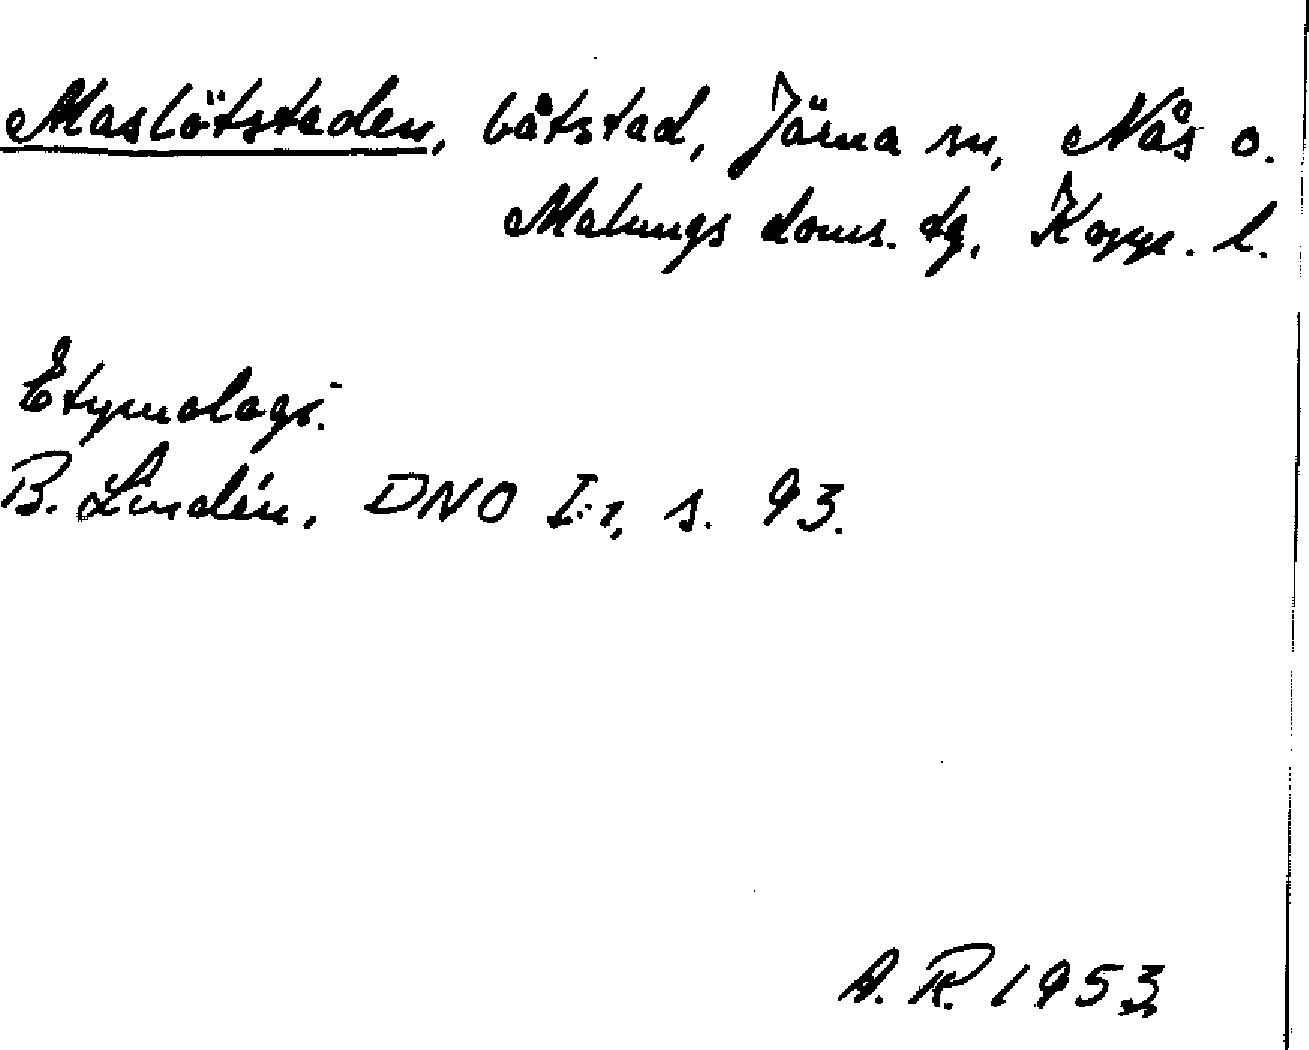 Maslötstaden, båtstad, Järna sn, Nås o.
Malungs doms. tg, Kopp. l.
Etymologi:
B. Lindén, DNO I:1, s. 93.
A. R. 1953